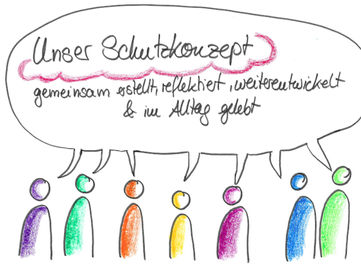 Unser Schutzkonzept
gemeinsam erstellt, reflektiert, weiterentwickelt
& im Alltag gelebt